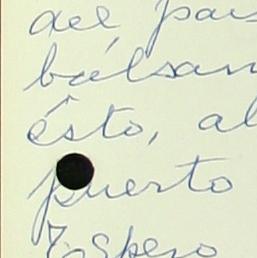 del pais
bálsam
ésto, al
puerto
Espero